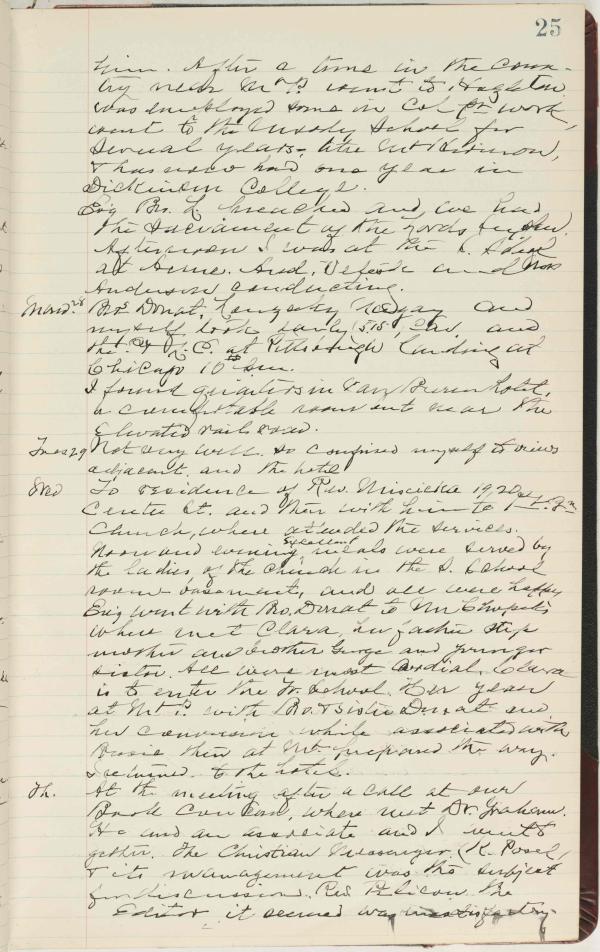 25
him. After a time in the coun-
try near Mt P. went to Hazleton
was employed some in Col work,
went to the Moody School for
several years, the Mt Hermon,
& has now had one year in
Dickinson College.
Eve Bro. L preached and we had
the Sacrament of the Lords Supper.
Afternoon I was at the S. School
at Anne. And. and Miss
Anderson conducting.
Mond. 28 Bros Donat, and
myself took early 5.15, car, and
the at Pittsburgh landing at
Chicago 10
I found quarters in Van Buren Hotel,
a comfortable room out near the
Elevated rail road.
Tues 29 Not very well. So confined myself to views
adjacent, and the hotel
Wed To residence of Rev. Miscicka 1920
Centre St. and then with him to
Church, where attended the services.
Noon and evening excellent meals were served by
the ladies of the Church in the S. School
room basement, and all were happy
Eve went with Bro. Donat to Mr
where met Clara, her father step
mother and brother George and younger
sister. All were most cordial. Clara
is to enter the Tr. School. Her year
at Mt P. with Bro. & Sister Donat and
her conversion while associated with
then at Mt. prepared the way.
I returned to the hotel.
Th. At the meeting after a call at our
Book Concern, where met Dr. Graham.
He and an associate and I went to-
gether. The Christian Messenger, (K. Posel)
& its management was the subject
for discussion. Rev the
Editor it seemed was